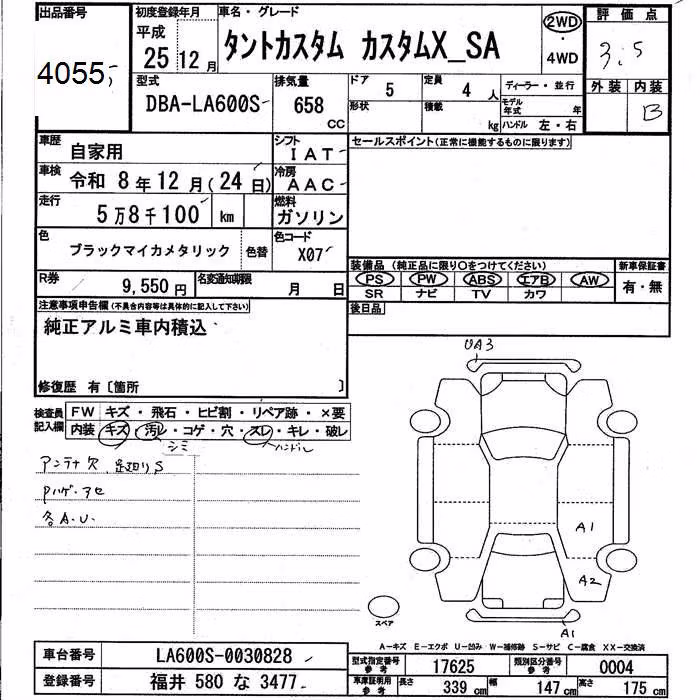 出品番号
4055
初度登録年月
平成
25年 12月
車名・グレード
タントカスタム カスタムX_SA
2WD
・
4WD
評価点
3.5
外装 内装
B
型式
DBA-LA600S
排気量
658 cc
ドア 5
定員 4 人
形状
積載 kg
ディーラー・並行
モデル年式 年
ハンドル 左・右
車歴 自家用
シフト IAT
セールスポイント(正常に機能するものに限ります)
車検 令和 8年 12月 (24日)
冷房 AAC
走行 5万8千100 km
燃料 ガソリン
色 ブラックマイカメタリック 色替
色コード X07
装備品 (純正品に限り○をつけてください)
新車保証書
PS PW ABS エアB AW
SR ナビ TV カワ
有・無
R券 9,550円
名変通知期限 月 日
後日品
注意事項申告欄 (不具合内容等は具体的に記入して下さい)
純正アルミ車内積込
修復歴 有 〔箇所 〕
検査員記入欄
FW キズ・飛石・ヒビ割・リペア跡・×要
内装 キズ・汚レ・コゲ・穴・スレ・キレ・破レ
シミ ハンドル
アンテナ欠 足廻りS
Pハゲ・アセ
各A.U.
UA3
A1
A2
A1
スペア
A-キズ E-エクボ U-凹み W-補修跡 S-サビ C-腐食 XX-交換済
車台番号 LA600S-0030828
登録番号 福井 580 な 3477
型式指定番号 参考 17625
類別区分番号 参考 0004
車庫証明用 参考 長さ 339 cm 幅 147 cm 高さ 175 cm